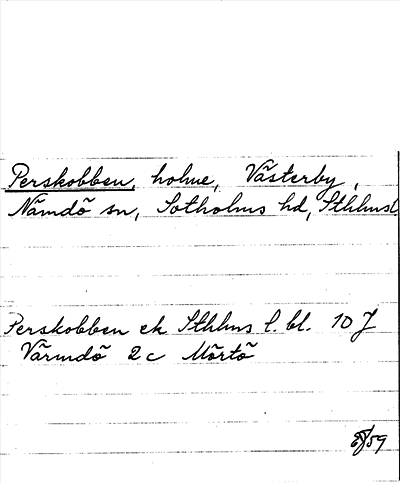 Perskobben, holme, Västerby,
Nämdö sn, Sotholms hd, Sthlmsl
Perskobben ek Sthlms l. bl. 10 J
Värmdö 2c Mörtö
59